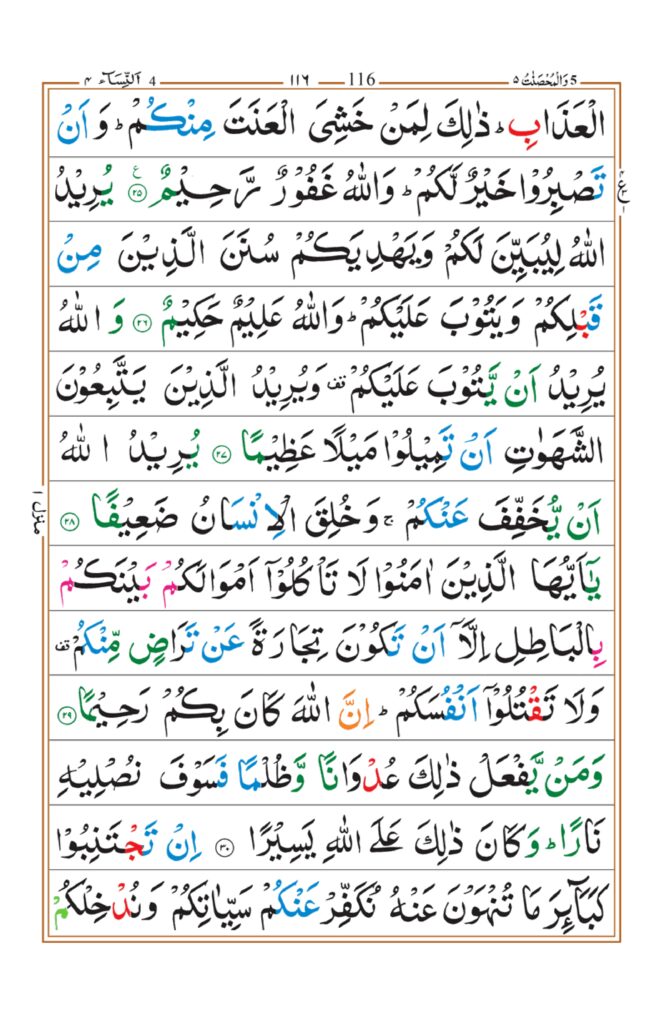 5 وَالْمُحْصَنٰتُ ٥ 116 ١١٦ 4 اَلنِّسَآء ٤
الْعَذَابِ ؕ ذٰلِكَ لِمَنْ خَشِىَ الْعَنَتَ مِنْكُمْ ؕ وَ اَنْ
تَصْبِرُوْا خَيْرٌ لَّكُمْ ؕ وَاللّٰهُ غَفُوْرٌ رَّحِيْمٌ ﴿٢٥﴾ ع يُرِيْدُ
اللّٰهُ لِيُبَيِّنَ لَكُمْ وَيَهْدِيَكُمْ سُنَنَ الَّذِيْنَ مِنْ
قَبْلِكُمْ وَيَتُوْبَ عَلَيْكُمْ ؕ وَاللّٰهُ عَلِيْمٌ حَكِيْمٌ ﴿٢٦﴾ وَ اللّٰهُ
يُرِيْدُ اَنْ يَّتُوْبَ عَلَيْكُمْ قف وَيُرِيْدُ الَّذِيْنَ يَتَّبِعُوْنَ
الشَّهَوٰتِ اَنْ تَمِيْلُوْا مَيْلًا عَظِيْمًا ﴿٢٧﴾ يُرِيْدُ اللّٰهُ
اَنْ يُّخَفِّفَ عَنْكُمْ ۚ وَخُلِقَ الْاِنْسَانُ ضَعِيْفًا ﴿٢٨﴾
منزل ١
يٰۤاَيُّهَا الَّذِيْنَ اٰمَنُوْا لَا تَاْكُلُوْۤا اَمْوَالَكُمْ بَيْنَكُمْ
بِالْبَاطِلِ اِلَّاۤ اَنْ تَكُوْنَ تِجَارَةً عَنْ تَرَاضٍ مِّنْكُمْ قف
وَلَا تَقْتُلُوْۤا اَنْفُسَكُمْ ؕ اِنَّ اللّٰهَ كَانَ بِكُمْ رَحِيْمًا ﴿٢٩﴾
وَمَنْ يَّفْعَلْ ذٰلِكَ عُدْوَانًا وَّظُلْمًا فَسَوْفَ نُصْلِيْهِ
نَارًا ؕ وَكَانَ ذٰلِكَ عَلَى اللّٰهِ يَسِيْرًا ﴿٣٠﴾ اِنْ تَجْتَنِبُوْا
كَبَآئِرَ مَا تُنْهَوْنَ عَنْهُ نُكَفِّرْ عَنْكُمْ سَيِّاٰتِكُمْ وَنُدْخِلْكُمْ